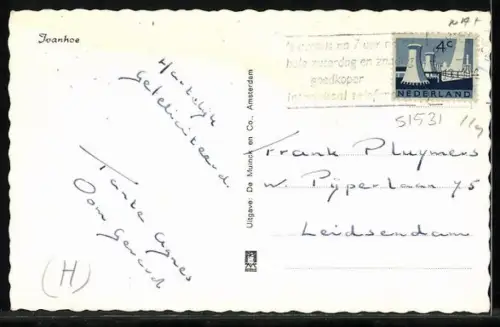 Ivanhoe
Hartelijk
gefeliciteerd.
Tante Agnes
Oom Gerard
(H)
Uitgave: De Muinck en Co., Amsterdam
's avonds na 7 uur
hele zaterdag en
goedkoper
4c
NEDERLAND
51531
Frank Pluymers
W. Pijperlaan 75
Leidsendam